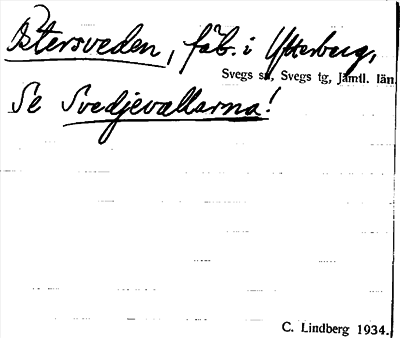 Östersveden, fäb. i Ytterberg,
Svegs sn, Svegs tg, Jämtl. län.
Se Svedjevallarna!
C. Lindberg 1934.